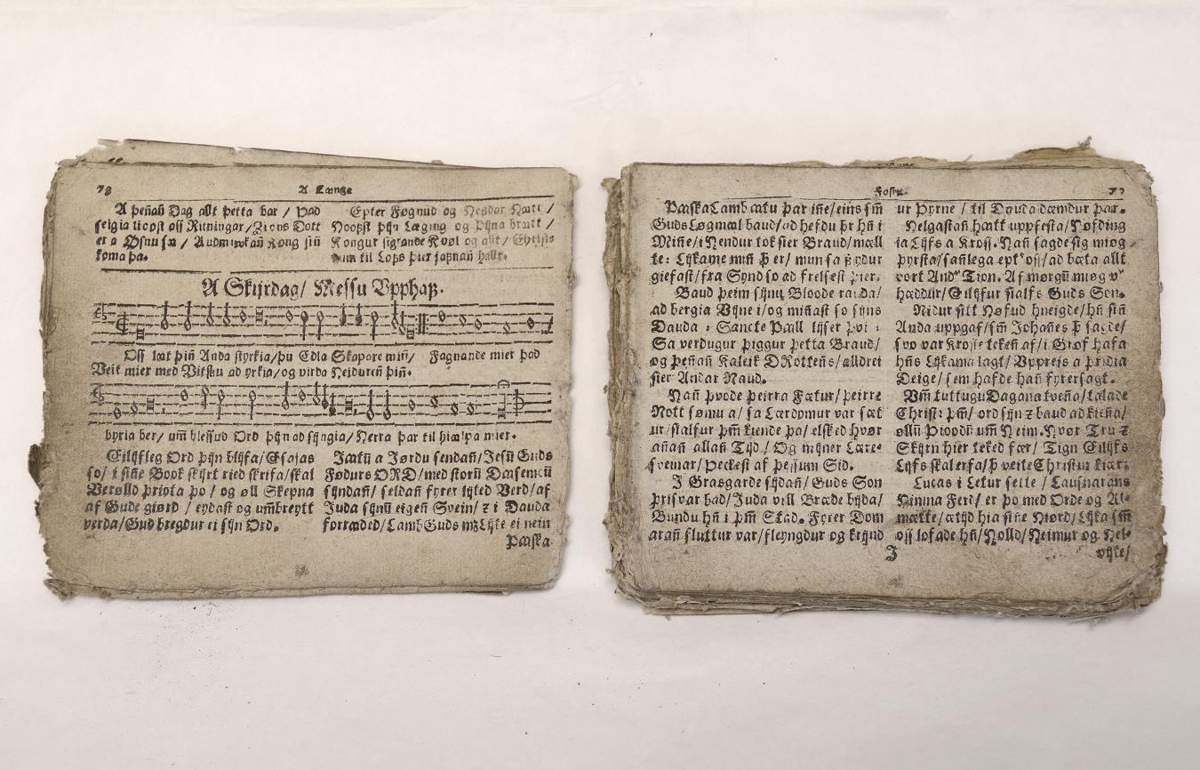 78
A Længe
A þen̄an Dag allt þetta var / Þad
seigia lioost oss Ritningar / Zions Dott
er a Osnu sa / Audmiukan̄ Kong sin̄
koma þa.
Epter Føgnud og
Hoopst þijn Læging og Pijna bratt /
Kongur sigrande Kvøl og
til Lops þur
A Skijrdag / Messu Vpphaß.
Oss læt þin̄ Anda styrkia / þu Edla Skapare min̄ / Fagnande mier þad
Veit mier med Vitsku ad yrkia / og virda Heiduren̄ þin̄.
byria ber / um̄ blessud Ord þijn ad sijngia / Nerra þar til hiælpa mier.
Eilijfleg Ord þijn blijfa / Esaias
so / i sin̄e Book skijrt ried skrifa / skal
Verølld priota þo / og øll Skepna
af Gude giørd / eydast og um̄breytt
verda / Gud bregdur ei sijn Ord.
Jætu a Jørdu sendan̄ / Jesu̅ Guds
Fødurs ORD / med storu̅ Dasemdu̅
sijndan̄ / seldan̄ fyrer lijted Verd / af
Juda sijnu̅ eigen Svein / ⁊ i Dauda
forræded / Lamb Guds m̄ Lijke ei nein
Pæska
Foste.
77
PæskaLamb ætu þar in̄e / eins sm̄
Guds Løgmæl baud / ad hefdu þr hn̄ i
Min̄e / i Hendur tok sier Braud / mæll
te: Lijkame min̄ þ er / mun sa ydur
giefast / fra Synd so ad frelsest þier.
Baud þeim sijnu̅ Bloode rauda /
ad bergia Vijne i / og min̄ast so sijns
Dauda : Sancte Pæll lijser þvi :
Sa verdugur þiggur þetta Braud /
og þen̄an Kaleik DRottens / alldrei
sier Andar Naud.
Han̄ þvode þeirra Fætur / þeirre
Nott søm̄u a / sa Lærdomur var sæt
ur / sialfur þm̄ kiende þa / elsked hvør
an̄an̄ allan̄ Tijd / Og mijner Lære-
sveinar / þeckest af þessum Sid.
I Grasgarde sijdan̄ / Guds Son
þrisvar bad / Juda vill Bræde bijda /
Bundu hn̄ i þm̄ Stad. Fyrer Dom
aran̄ fluttur var / fleyngdur og krijnd
ur Þyrne / til Dauda dæmdur þar.
Helgastan̄ hatt uppfesta / Høfding
ia Lijfs a Kross. Han̄ sagde sig miøg
þyrsta / san̄lega ept' oss / ad bæta allt
vort And' Tion. Af mørgu̅ miøg v'
hæddur / Eilijfur sialfs Guds Son.
Nidur sitt Høfud hneigde / hn̄ sin̄
Anda uppgaf / sm̄ Johan̄es þ sagde /
svo var Kroste teken̄ af / i Grof hafa
hn̄s Lijkama lagt / Uppreis a þridia
Deige / sem hafde han̄ fyrersagt.
Um̄ tuttugu Dagana tven̄a / talade
Christ' þm̄ / ord sijn ⁊ baud ad kien̄a /
øllu̅ Þioodu̅ um̄ Heim. Hvør Tru ⁊
Skijrn hier teked fær / Tign Eilijfs
Lijfs skal erfa / þ veite Christur kiær.
Lucas i Letur sette / Lausnarans
Hinna Ferd / er þo med Orde og Al-
mætte / ætijd hia sin̄e Hiord / Lijka sm̄
oss lofade hn̄ / Holld / Heimur og Hel-
vijte /
J